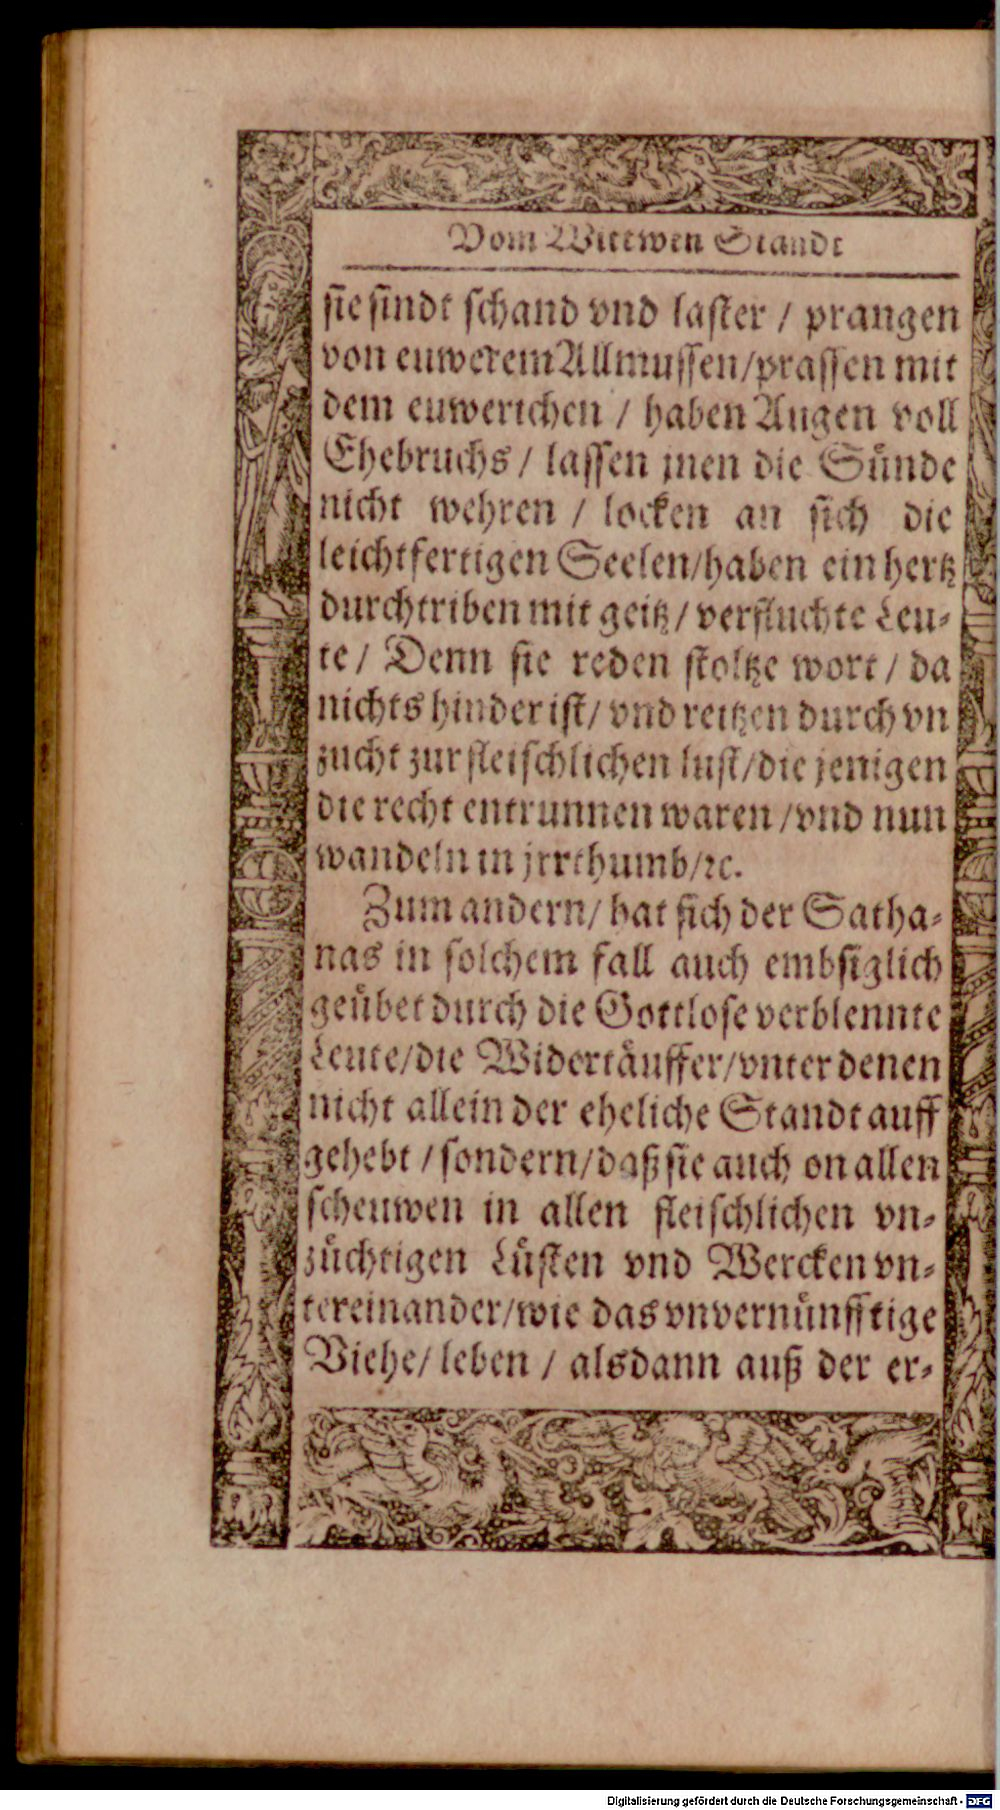 Vom Wittwen Standt
sie sindt schand vnd laster / prangen
von euwerem Allmussen/prassen mit
dem euwerichen / haben Augen voll
Ehebruchs / lassen jnen die Sünde
nicht wehren / locken an sich die
leichtfertigen Seelen/haben ein hertz
durchtriben mit geitz / verfluchte Leu-
te / Denn sie reden stoltze wort / da
nichts hinder ist/ vnd reitzen durch vn
zucht zur fleischlichen lust/die jenigen
die recht entrunnen waren /vnd nun
wandeln in jrrthumb/ꝛc.
Zum andern/ hat sich der Satha-
nas in solchem fall auch embsiglich
geübet durch die Gottlose verblennte
Leute/die Widertäuffer/vnter denen
nicht allein der eheliche Standt auff
gehebt / sondern/daß sie auch on allen
scheuwen in allen fleischlichen vn-
züchtigen Lüsten vnd Wercken vn-
tereinander/wie das vnvernünfftige
Viehe/ leben / alsdann auß der er-
Digitalisierung gefördert durch die Deutsche Forschungsgemeinschaft - DFG